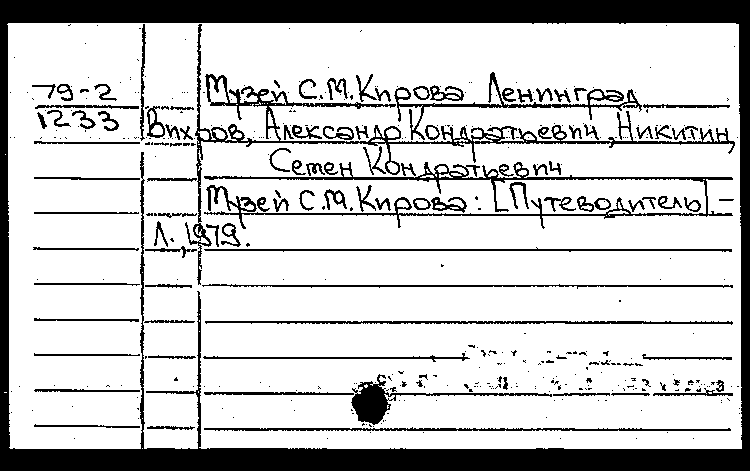 79-2 Музей С.М.Кирова Ленинград
1233 Вихров, Александр Кондратьевич, Никитин,
Семен Кондратьевич.
Музей С.М.Кирова: [Путеводитель]. –
Л., 1979.